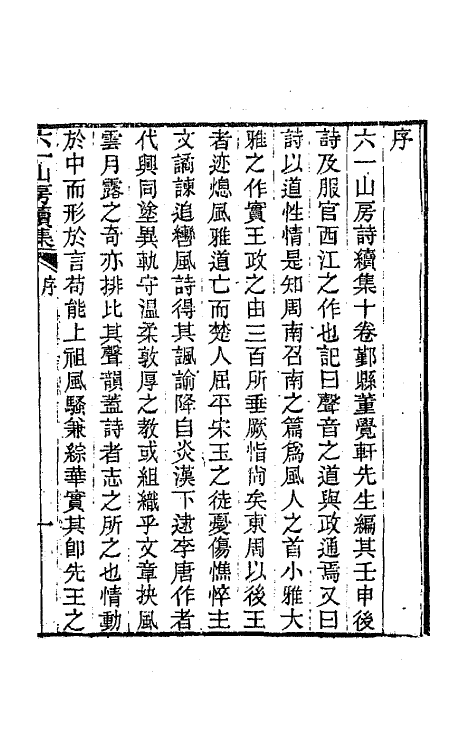 序
六一山房詩續集十卷鄞縣董覺軒先生編其壬申後
詩及服官西江之作也記曰聲音之道與政通焉又曰
詩以道性情是知周南召南之篇爲風人之首小雅大
雅之作實王政之由三百所垂厥恉尙矣東周以後王
者迹熄風雅道亡而楚人屈平宋玉之徒憂傷憔悴主
文譎諫追轡風詩得其諷諭降自炎漢下逮李唐作者
代興同塗異軌守温柔敦厚之教或組織乎文章抉風
雲月露之奇亦排比其聲韻蓋詩者志之所之也情動
於中而形於言苟能上祖風騷兼綜華實其卽先王之
六一山房續集 序 一